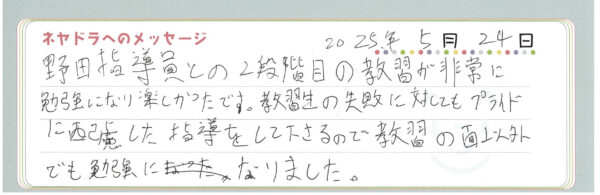 ネヤドラへのメッセージ 2025年 5月 24日
野田指導員との2段階目の教習が非常に
勉強になり楽しかったです。教習生の失敗に対してもプライド
に配慮した指導をして下さるので教習の面以外
でも勉強になりました。